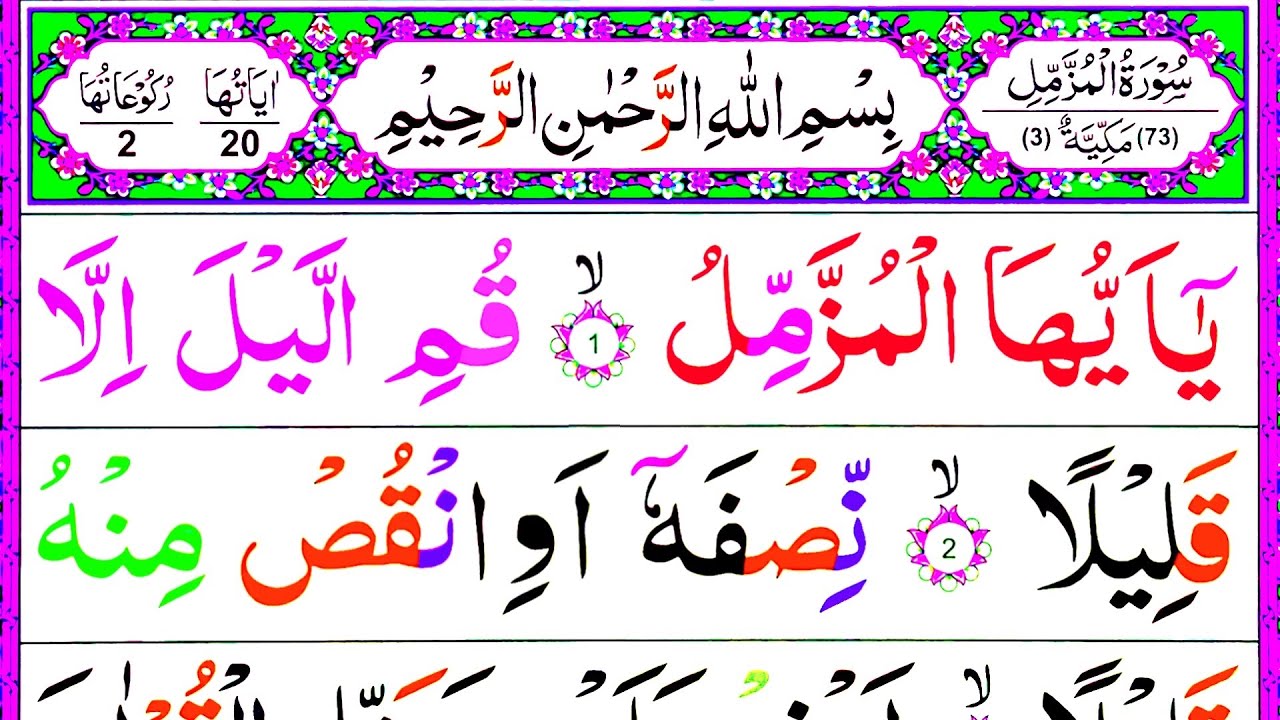 سُوْرَةُ الْمُزَّمِّلِ
(73) مَكِّيَّةٌ (3)
بِسْمِ اللّٰهِ الرَّحْمٰنِ الرَّحِيْمِ
اٰيَاتُهَا 20
رُكُوْعَاتُهَا 2
يٰۤاَيُّهَا الْمُزَّمِّلُ ۙ 1 قُمِ الَّيْلَ اِلَّا
قَلِيْلًا ۙ 2 نِّصْفَهٗۤ اَوِ انْقُصْ مِنْهُ